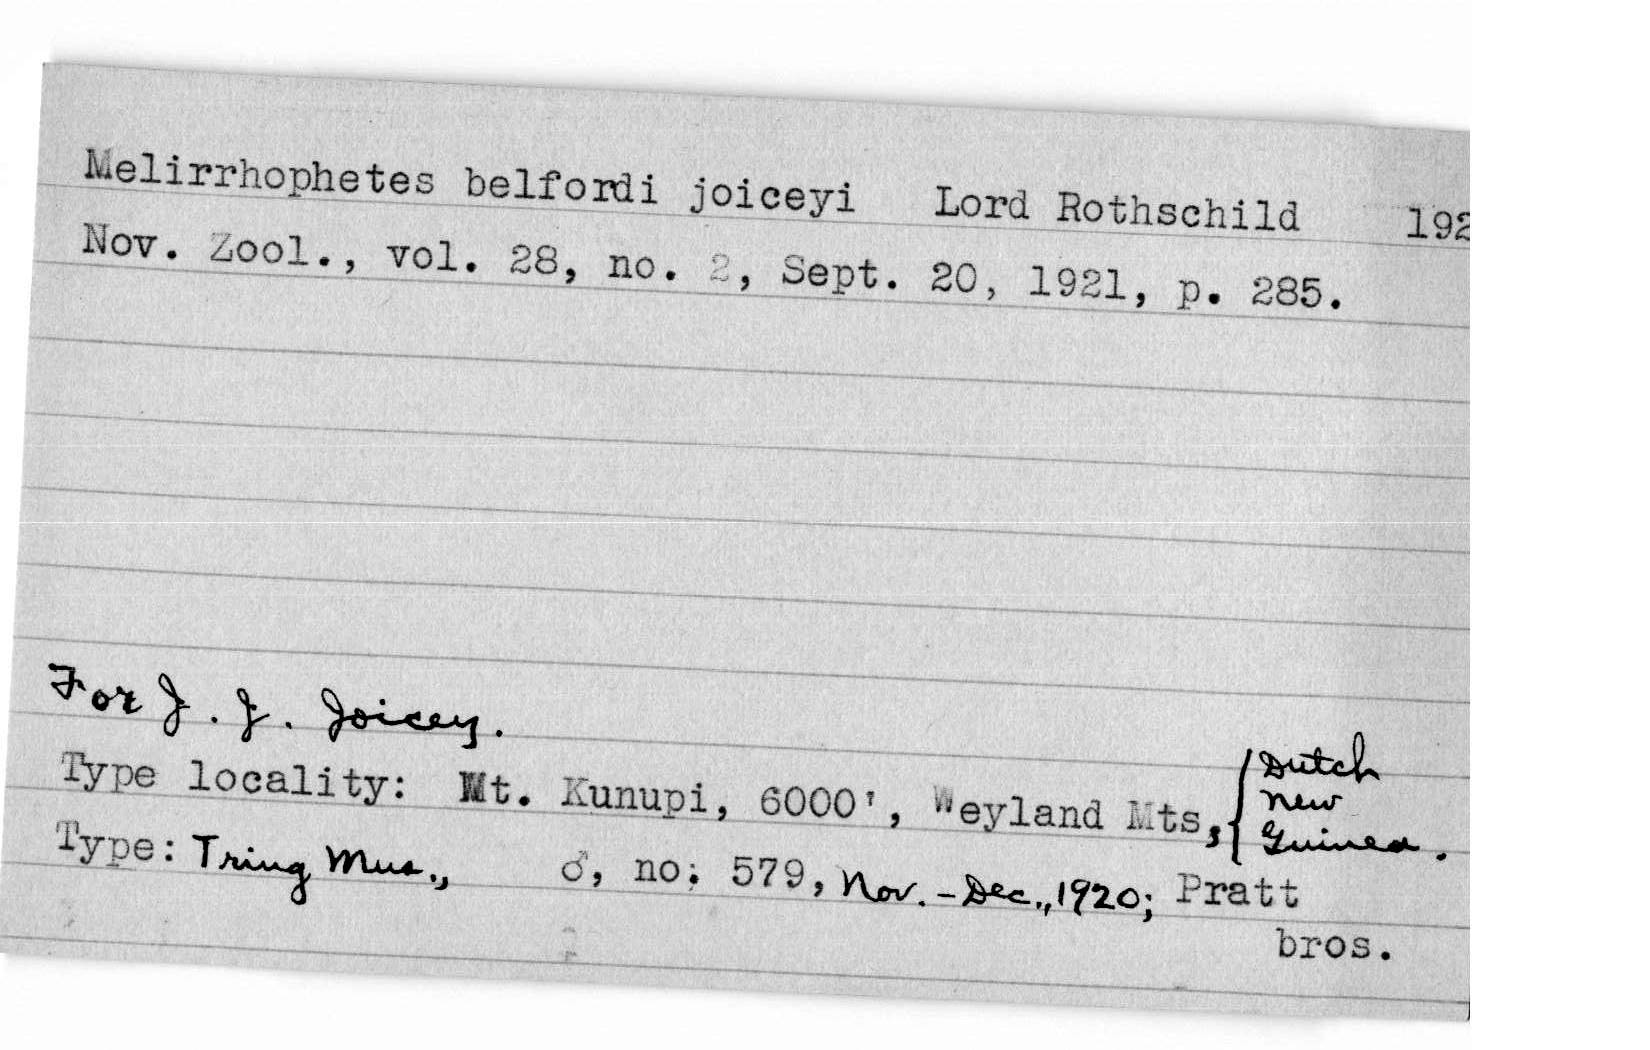 Melirrhophetes belfordi joiceyi Lord Rothschild 192
Nov. Zool., vol. 28, no. 2, Sept. 20, 1921, p. 285.
For J. J. Joicey.
Type locality: Mt. Kunupi, 6000', Weyland Mts, { Dutch
New
Guinea.
Type: Tring Mus., ♂, no; 579, Nov. - Dec., 1920; Pratt
bros.